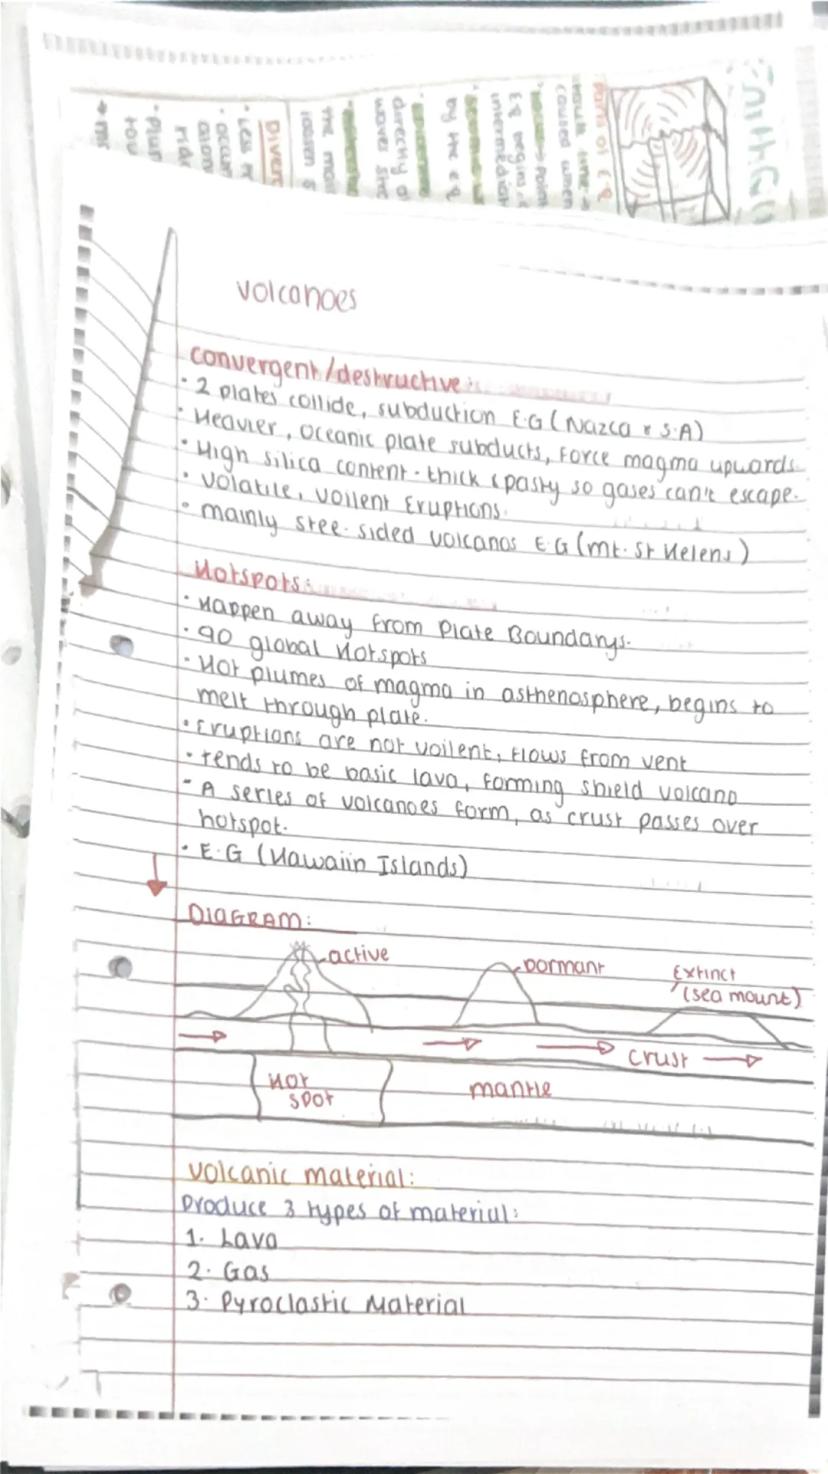 Parts of E.Q
caused when
Focus → Point
E.Q begins
intermediat
by the E.Q
directly
waves
the
Diver
Less
occur
ridg
volcanoes
convergent/destructive:
· 2 plates collide, subduction E.G (Nazca x S.A)
· Heavier, Oceanic plate subducts, force magma upwards
· High silica content - thick & pasty so gases can't escape.
· Volatile, voilent Eruptions.
· mainly stee-sided volcanos E.G (Mt. St Helens)
Hotspots:
· Happen away from Plate Boundarys.
· 90 global Hotspots
· Hot plumes of magma in asthenosphere, begins to
melt through plate.
· Eruptions are not voilent, flows from vent
· tends to be basic lava, forming shield volcano
· A series of volcanoes form, as crust passes over
hotspot.
· E.G (Hawaiin Islands)
DIAGRAM:
active
Dormant
Extinct
(sea mount)
crust
Hot
spot
mantle
volcanic material:
Produce 3 types of material:
1. Lava
2. Gas
3. Pyroclastic Material